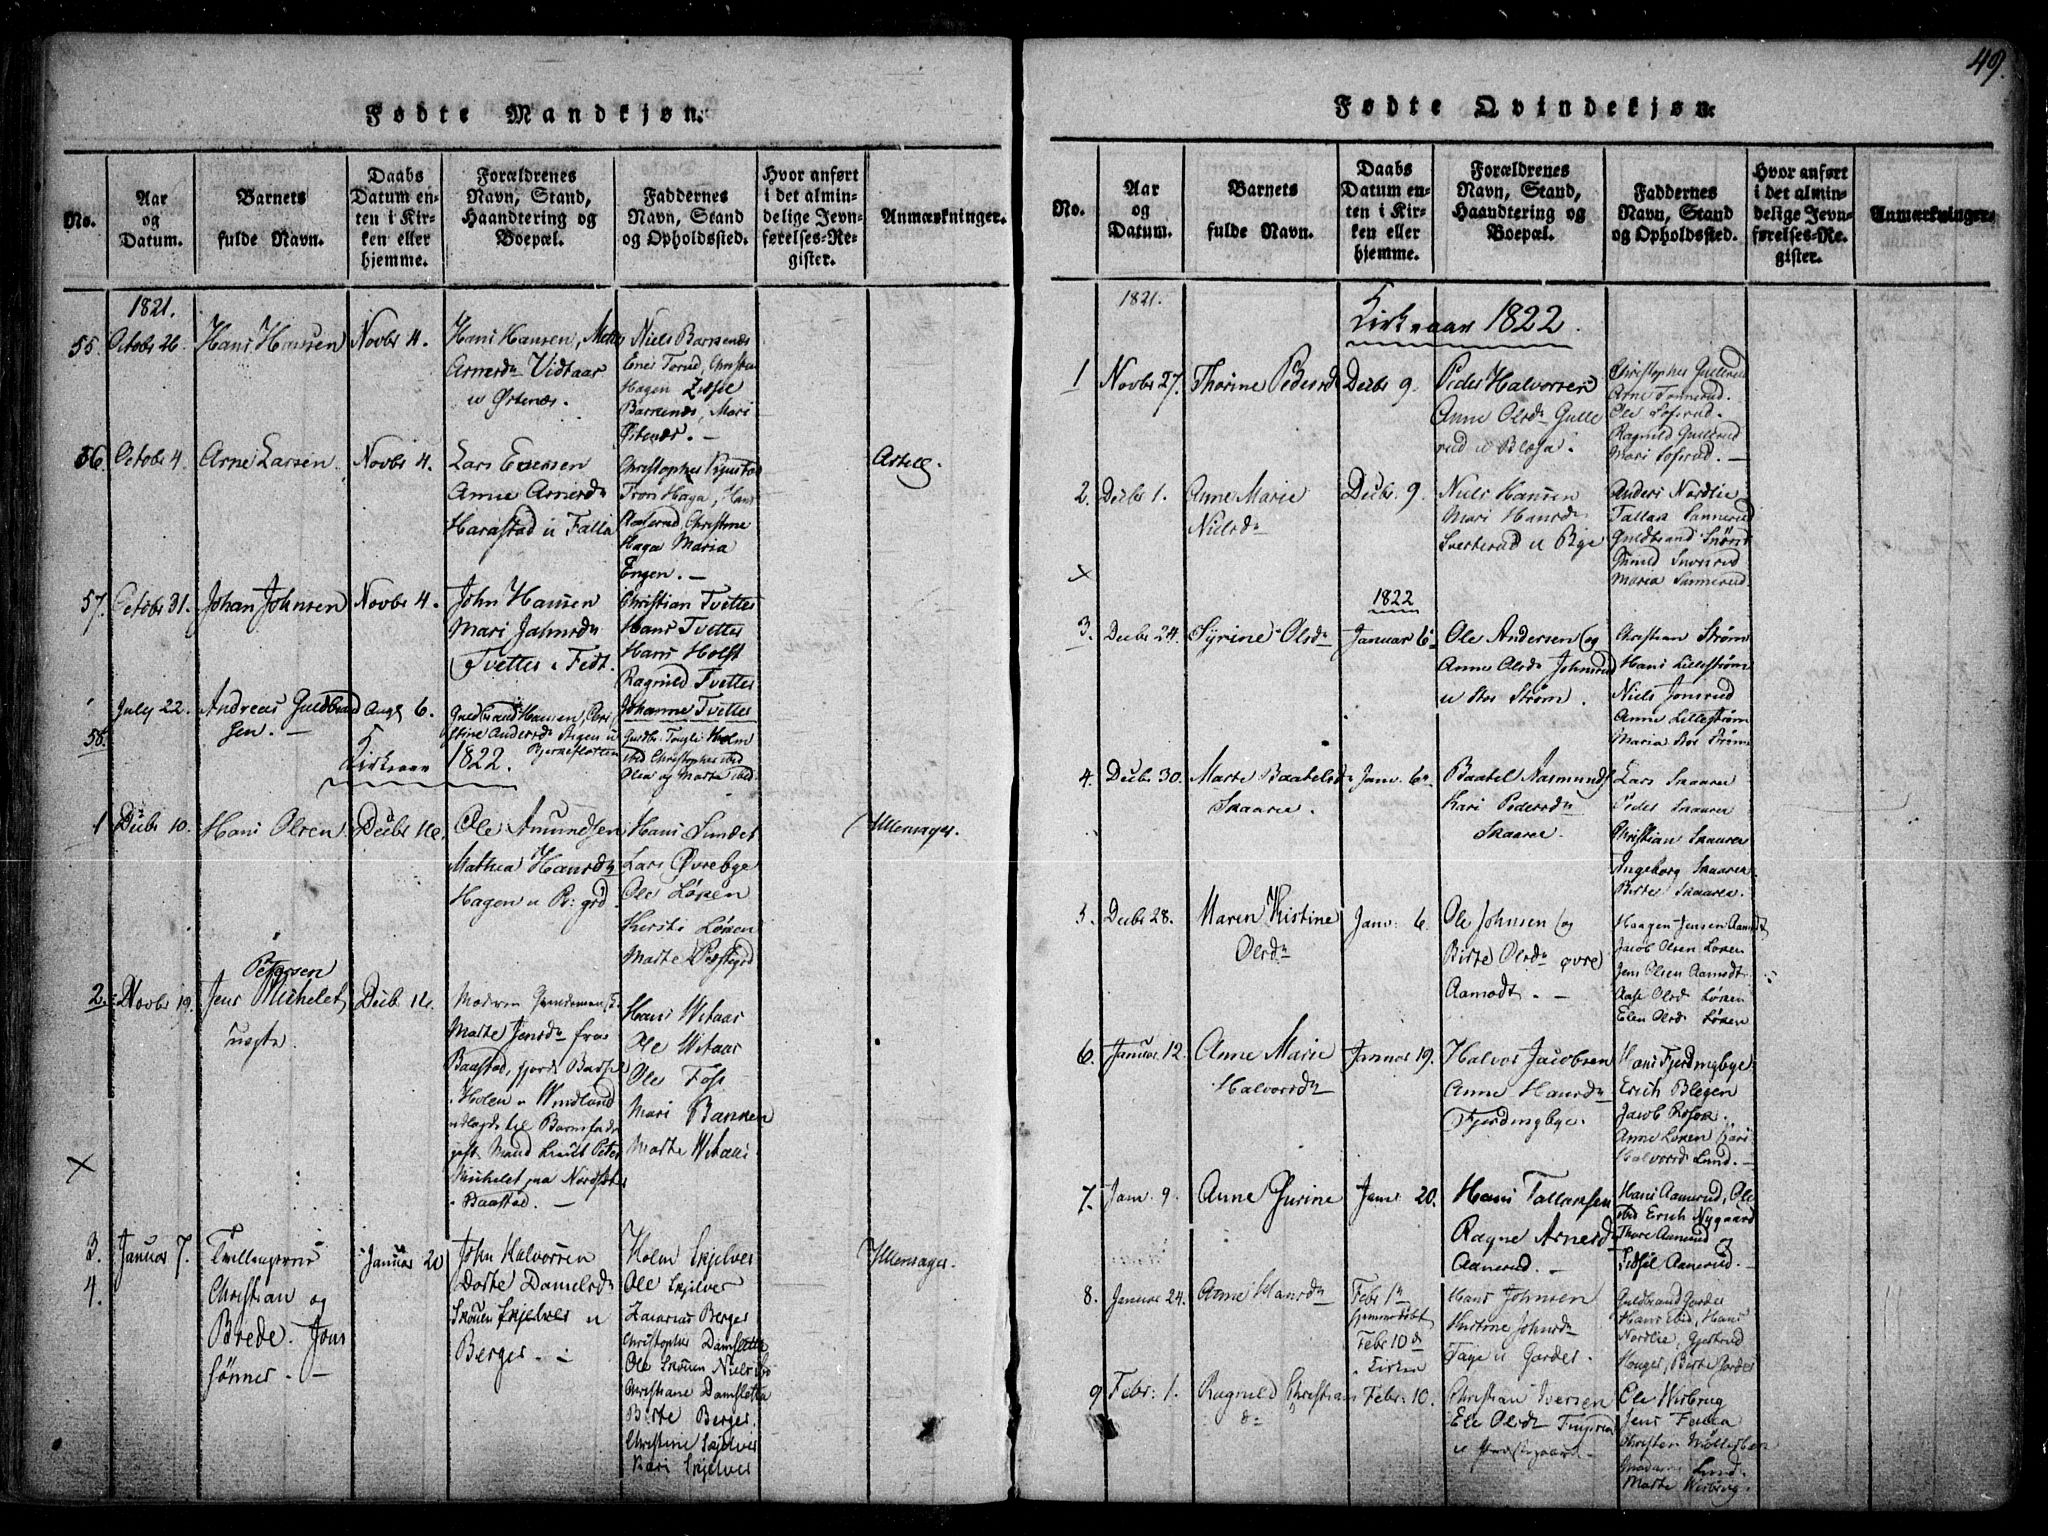 49.
Fødte Mandkjøn.
No.
Aar
og
Datum.
Barnets
fulde Navn.
Daabs
Datum en-
ten i Kir-
ken eller
hjemme.
Forældrenes
Navn, Stand,
Haandtering og
Boepæl.
Faddernes
Navn, Stand
og Opholdssted.
Hvor anført
i det almin-
delige Jevn-
førelses-Re-
gister.
Anmærkninger.
1821.
55. Octobr 26. Hans Hansen Novbr 4.
Hans Hansen,
Arnesdr Vidtaar
u Østenæs.
Niels Barrenæs
Hagen
Barrenæs, Mari
Østenæs. —
56. Octobr 4. Arne Larsen. Novbr 4.
Lars
Anne Arnesdr
Harastad u Falla
Tron Haga, Hans
Christine
Haga Maria
Engen. —
57. Octobr 31. Johan Johnsen Novbr 4.
John Hansen
Mari
Tvetter u Fedt.
Christian Tvetter
Hans Tvetter
Hans Holst
Ragnild Tvetter
Johanne Tvetter
58. July 22. Andreas Guldbrand
sen. —
Aug 6.
Guldbrand Hansen,
stine Andersdr
Guldbr.
ibid Christopher ibid
Olea og Marta ibid.
Kirkeaar 1822.
1 Decbr 10. Hans Olsen Decbr 16.
Ole Amundsen
Mathea Hansdr
Hagen u Pr: grd
Hans Sundet
Lars Øvrebye
Ole Løken
Kersti Løken
Marte Præstegrd
Ullensager.
2. Novbr 19. Jens Petersen Michelet
uegte
Decb. 16.
Moderen
Marte Jensdr fra
Baastad,
Holen u Windland
udlagde til Barnefader
gift Mand Lieut Peter
Michelet paa Nordset
Baastad. —
Hans Witaar
Ole Witaar
Ole Foss
Mari Banken
Marte Witaar
3.
4.
Januar 7.
Tvillingerne
Christian og
Brede. Jons
sönner. —
Januar 20
John Halvorsen
Dorte Danielsdr
Skouen Skjelver u
Berger. —
Holm Skjelver
Ole Skjelver
Zacarias Berger
Christopher Damsletta
Ole Skouen Niels ibid
Christiane Damsletta
Birte Berger.
Christine Skjelver
Kari Skjelver
Ullensager.
Fødte Qvindekjøn.
No.
Aar
og
Datum.
Barnets
fulde Navn.
Daabs
Datum en-
ten i Kir-
ken eller
hjemme.
Forældrenes
Navn, Stand,
Haandtering og
Boepæl.
Faddernes
Navn, Stand
og Opholdssted.
Hvor anført
i det almin-
delige Jevn-
førelses-Re-
gister.
Anmærkninger.
1821.
Kirkeaar 1822.
1 Novbr 27. Thorine Pedersd Decbr 9.
Peder Halvorsen
Anne Olsdr Gulle
rud u Blaksa.
Christopher Gullerud
Arne Tonnerud.
Ole Sofirud.
Ragnild Gullerud
Mari Sofirud. —
2. Decbr 1. Anne Marie
Nielsdr
Decbr. 9.
Niels Hansen
Mari Hansdr
Sverterud u Bye
Anders Nordlie
Tallak Sannerud
Guldbrand
Maria Sannerud.
1822
3. Decbr 24. Syrine Olsdr Januar 6
Ole Andersen og
Anne Olsdr Johnsrud
u Stor Strøm.
Christian Strøm
Hans Lillestrøm
Niels Jonsrud
Anne Lillestrøm
Maria Stor Strøm
4. Decbr 30. Marte Baatelsdr
Skaaren.
Janv. 6
Baatel Aasmunds
Kari Pedersdr
Skaaren.
Lars Skaaren
Peder Skaaren
Christian Skaaren
Ingeborg Skaaren.
Birte Skaaren.
5. Decbr 28. Maren Kistine
Olsdr
Janv: 6.
Ole Johnsen og
Birte Olsdr øvre
Aamodt. —
Haagen Jensen Aamodt
Jacob Olsen Løken
Jens Olsen Aamodt
Aase Olsd Løken
Elen Olsd. Løken
6. Januar. 12. Anne Marie
Halvorsdr
Januar 19.
Halvor Jacobsen
Anne Hansdr
Fjerdingbye.
Hans Fjerdingbye
Erich Blegen
Jacob
Anne Løken Kari
Halvorsd Lund. —
7. Jan. 9. Anne Gurine Janr 20.
Hans Tallaksen
Ragne Arnesdr
Aanerud. —
Hans Aanerud, Ole
ibid Erich Nygaard
Thore Aanerud
Sidsel Aanerud. —
8. Januar 24. Anne Hansdr
Febr 1
hjemmedøbt
Febr 10 d
i Kirken
Hans Johnsen
Kirstine Johnsdr
Faye u Garder.
Guldbrand Garder
Hans ibid, Hans
Nordlie, Gjertrud
Birte Garder
9 Febr: 1. Ragnild Christians
d=
Febr: 10.
Christian Iversen
Ele Olsdr
u Præstegaard
Ole Wisbrug
Jens Falla
Christen
Lund.
Marte Wisbrug.